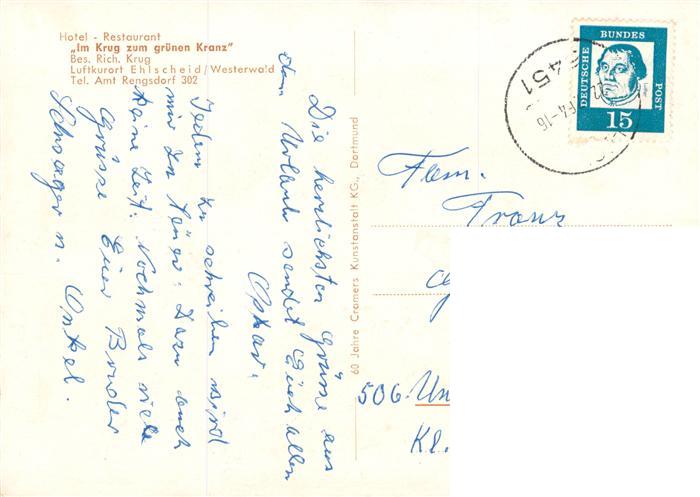 Hotel - Restaurant
„Im Krug zum grünen Kranz"
Bes. Rich. Krug
Luftkurort Ehlscheid/Westerwald
Tel. Amt Rengsdorf 302
Die herzlichsten Grüsse aus
dem Urlaub sendet Euch allen
Oskar.
Jedem zu schreiben wird
mir zu Dazu auch
keine Zeit. Nochmals viele
Grüsse Euer Bruder
Schwager u. Onkel.
60 Jahre Cramers Kunstanstalt KG., Dortmund
DEUTSCHE BUNDES POST
Luther
15
451
-16
Fam.
Franz
506 Un
Kl.